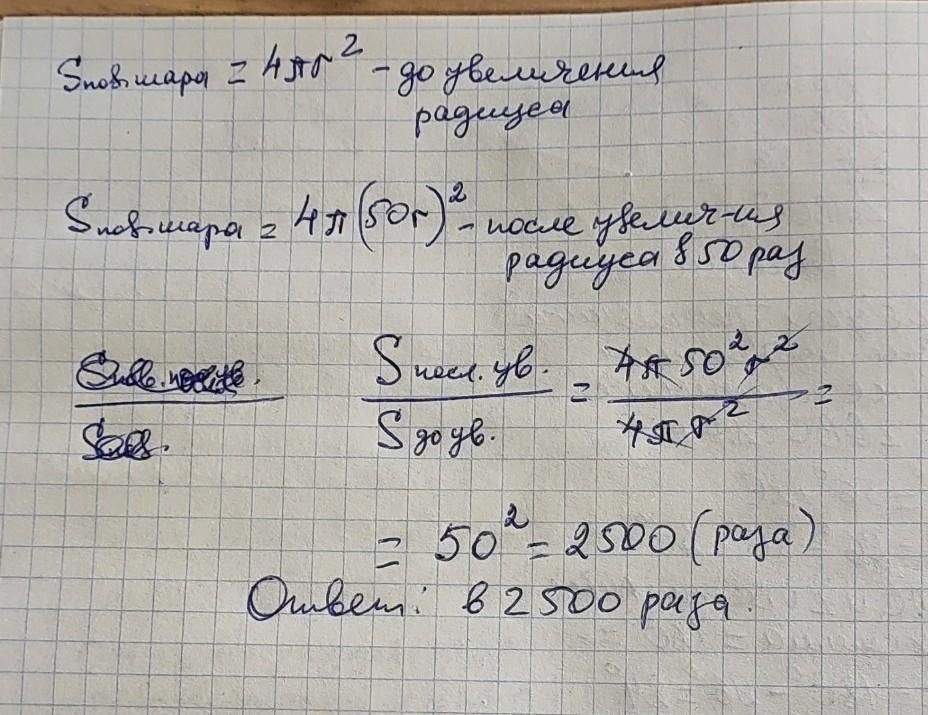 Sпов.шара = 4πr² – до увеличения
радиуса
Sпов.шара = 4π(50r)² – после увелич-ия
радиуса в 50 раз
Sпосл.ув. / Sдо ув. = 4π50²r² / 4πr² =
= 50² = 2500 (раза)
Ответ: в 2500 раза.